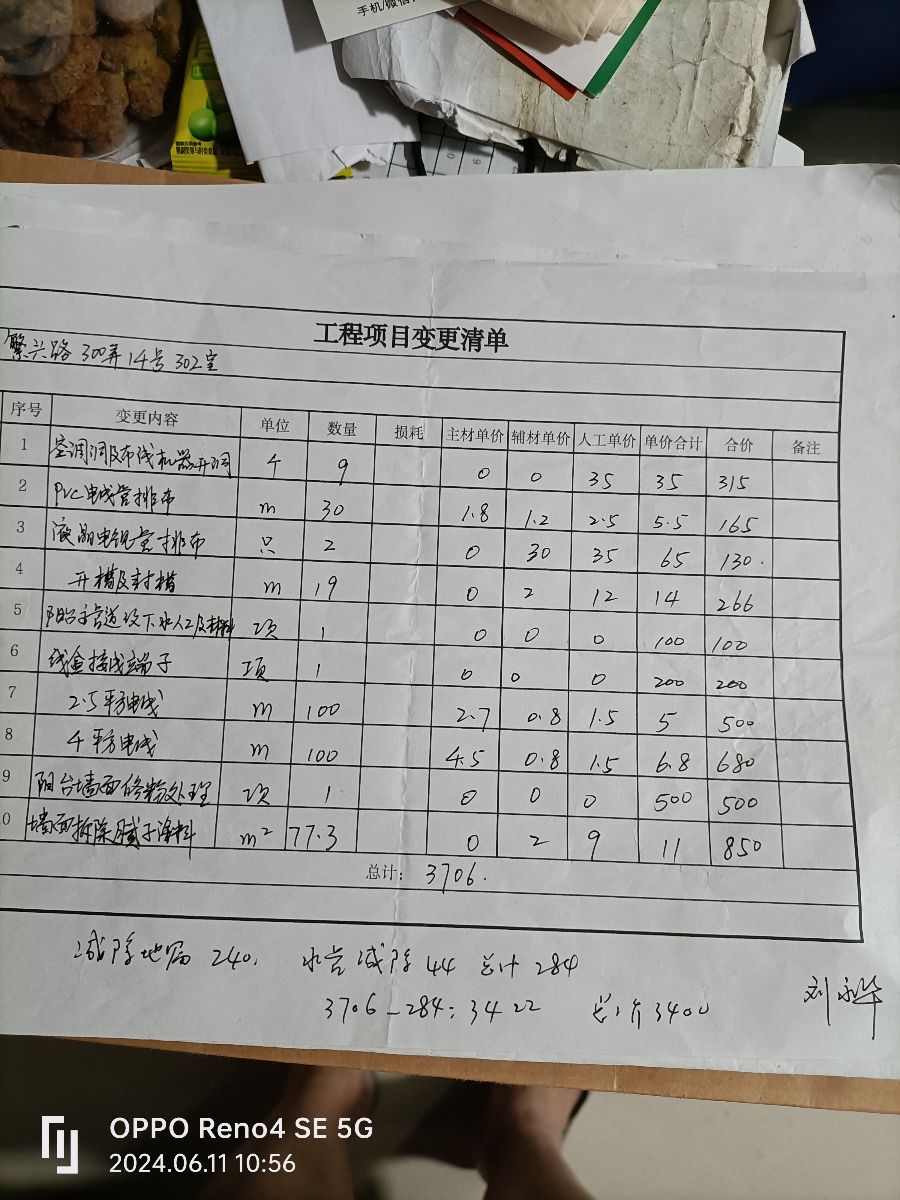 手机/微信
工程项目变更清单
繁兴路 300弄14号 302室
序号 变更内容 单位 数量 损耗 主材单价 辅材单价 人工单价 单价合计 合价 备注
1 空调洞及布线机器开洞 个 9 0 0 35 35 315
2 PVC电线管排布 m 30 1.8 1.2 2.5 5.5 165
3 液晶电视管排布 只 2 0 30 35 65 130.
4 开槽及封槽 m 19 0 2 12 14 266
5 阳台管道及下水人工及材料 项 1 0 0 0 100 100
6 线盒接线端子 项 1 0 0 0 200 200
7 2.5平方电线 m 100 2.7 0.8 1.5 5 500
8 4平方电线 m 100 4.5 0.8 1.5 6.8 680
9 阳台墙面修粉处理 项 1 0 0 0 500 500
0 墙面拆除腻子涂料 m² 77.3 0 2 9 11 850
总计: 3706.
减除地漏 240, 水台减除 44 总计 284
3706-284=3422 总价3400
刘
OPPO Reno4 SE 5G
2024.06.11 10:56